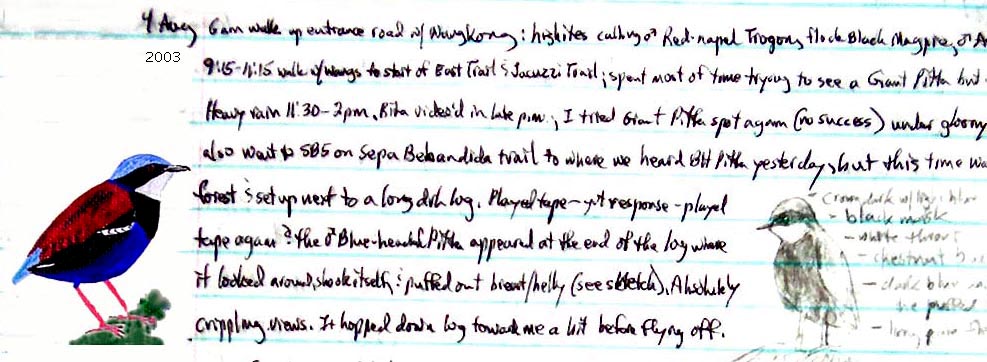 4 Aug 6am walk up entrance road w/ WongKong: highlites calling ♂ Red-naped Trogon, flock Black Magpie, ♂
2003
9:15-11:15 walk w/ Wongs to start of East Trail & Jacuzzi Trail; spent most of time trying to see a Giant Pitta but
Heavy rain 11:30-2pm. Rita video'd in late p.m.; I tried Giant Pitta spot again (no success) under gloomy
also went to SB5 on Sepa trail to where we heard BH Pitta yesterday, but this time
forest & set up next to a long dark log. Played tape - got response - played
tape again & the ♂ Blue-headed Pitta appeared at the end of the log where
it looked around, shook itself, & puffed out breast/belly (see sketch). Absolutely
crippling views. It hopped down log toward me a bit before flying off.
crown dark w/ light blue
- black mask
- white throat
- chestnut
- dark blue